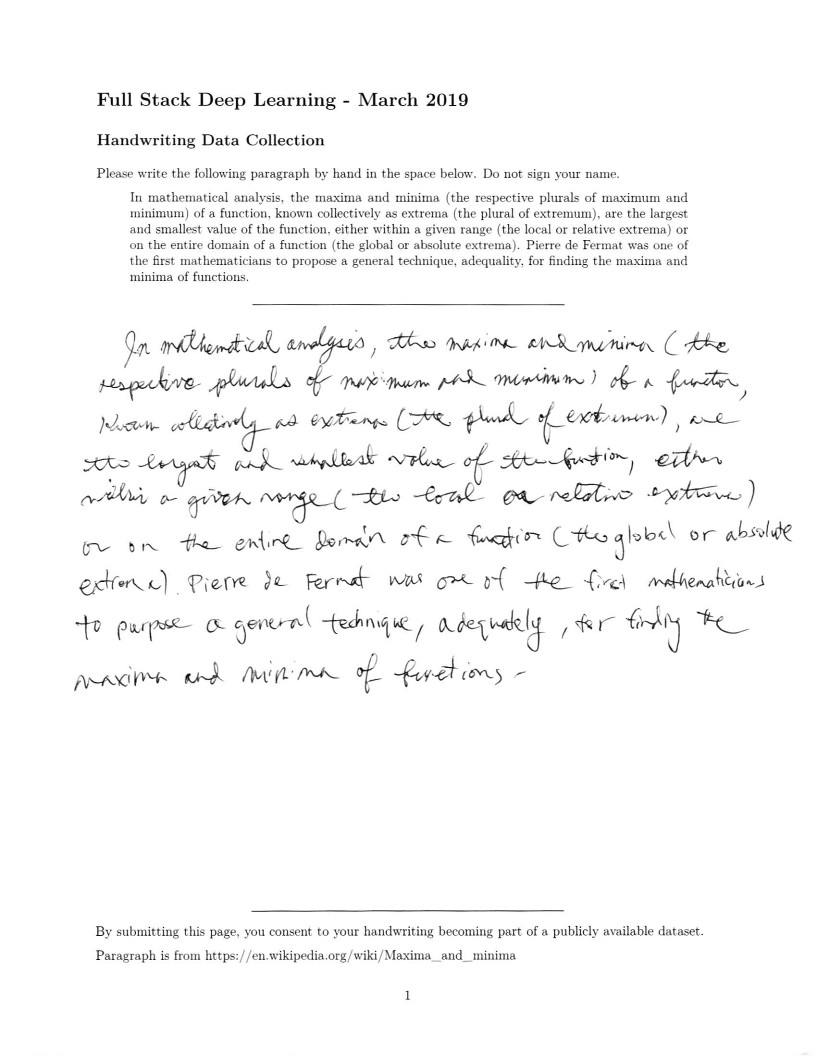 Full Stack Deep Learning - March 2019
Handwriting Data Collection
Please write the following paragraph by hand in the space below. Do not sign your name.
In mathematical analysis, the maxima and minima (the respective plurals of maximum and
minimum) of a function, known collectively as extrema (the plural of extremum), are the largest
and smallest value of the function, either within a given range (the local or relative extrema) or
on the entire domain of a function (the global or absolute extrema). Pierre de Fermat was one of
the first mathematicians to propose a general technique, adequality, for finding the maxima and
minima of functions.
In mathematical analysis, the maxima and minima (the
respective plurals of maximum and minimum) of a function,
known collectively as extrema (the plural of extremum), are
the largest and smallest value of the function, either
within a given range (the local or relative extrema)
or on the entire domain of a function (the global or absolute
extrema). Pierre de Fermat was one of the first mathematicians
to purpose a general technique, adequately, for finding the
maxima and minima of functions -
By submitting this page, you consent to your handwriting becoming part of a publicly available dataset.
Paragraph is from https://en.wikipedia.org/wiki/Maxima_and_minima
1